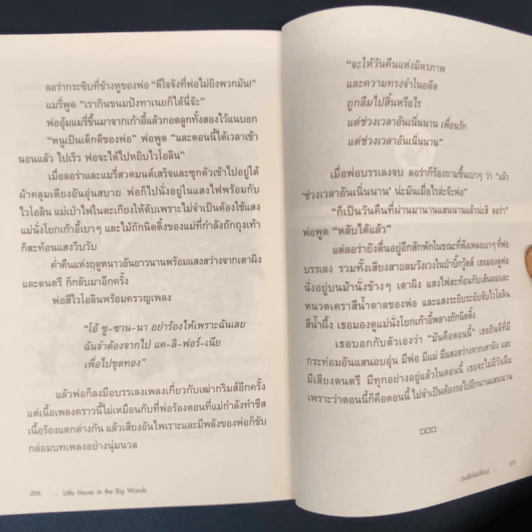 ลอร่ากระซิบที่ข้างหูของพ่อ "ดีใจจังที่พ่อไม่ยิงพวกมัน!"
แมรี่พูด "เรากินขนมปังทาเนยก็ได้นี่จ๊ะ"
พ่ออุ้มแมรี่ขึ้นมาจากเก้าอี้แล้วกอดลูกทั้งสองไว้แนบอก
"หนูเป็นเด็กดีของพ่อ" พ่อพูด "และตอนนี้ได้เวลาเข้า
นอนแล้ว ไปเร็ว พ่อจะได้ไปหยิบไวโอลิน"
เมื่อลอร่าและแมรี่สวดมนต์เสร็จและซุกตัวเข้าไปอยู่ใต้
ผ้าคลุมเตียงอันอุ่นสบาย พ่อก็ไปนั่งอยู่ในแสงไฟพร้อมกับ
ไวโอลิน แม่เป่าไฟในตะเกียงให้ดับเพราะไม่จำเป็นต้องใช้แสง
แม่นั่งโยกเก้าอี้เบาๆ และไม้ถักนิตติ้งของแม่ที่กำลังถักถุงเท้า
ก็สะท้อนแสงวิบวับ
ค่ำคืนแห่งฤดูหนาวอันยาวนานพร้อมแสงสว่างจากเตาผิง
และดนตรี ก็กลับมาอีกครั้ง
พ่อสีไวโอลินพร้อมครวญเพลง
"โอ้ ซู-ซาน-นา อย่าร้องไห้เพราะฉันเลย
ฉันจำต้องจากไป แค-ลิ-ฟอร์-เนีย
เพื่อไปขุดทอง"
แล้วพ่อก็ลงมือบรรเลงเพลงเกี่ยวกับเฒ่ากริมส์อีกครั้ง
แต่เนื้อเพลงคราวนี้ไม่เหมือนกับที่พ่อร้องตอนที่แม่กำลังทำชีส
เนื้อร้องแตกต่างกัน แล้วเสียงอันไพเราะและมีพลังของพ่อก็ขับ
กล่อมบทเพลงอย่างนุ่มนวล
206 · Little House in the Big Woods
"จะให้วันคืนแห่งมิตรภาพ
และความทรงจำในอดีต
ถูกลืมไปสิ้นหรือไร
แด่ช่วงเวลาอันเนิ่นนาน เพื่อนรัก
แด่ช่วงเวลาอันเนิ่นนาน"
เมื่อพ่อบรรเลงจบ ลอร่าก็ร้องถามขึ้นเบาๆ ว่า "แล้ว
'ช่วงเวลาอันเนิ่นนาน' น่ะมันเมื่อไรล่ะจ๊ะพ่อ"
"ก็เป็นวันคืนที่ผ่านมานานแสนนานแล้วน่ะสิ ลอร่า"
พ่อพูด "หลับได้แล้ว"
แต่ลอร่ายังตื่นอยู่อีกสักพักในขณะที่ฟังเพลงเบาๆ ที่พ่อ
บรรเลง รวมทั้งเสียงสายลมวังเวงในป่าบิ๊กวู้ดส์ เธอมองดูพ่อ
นั่งอยู่บนม้านั่งข้างๆ เตาผิง แสงไฟสะท้อนกับเส้นผมและ
หนวดเคราสีน้ำตาลของพ่อ และแสงระยิบระยับจับไวโอลิน
สีน้ำผึ้ง เธอมองดูแม่นั่งโยกเก้าอี้พลางถักนิตติ้ง
เธอบอกกับตัวเองว่า "มันคือตอนนี้" เธอยินดีที่มี
กระท่อมอันแสนอบอุ่น มีพ่อ มีแม่ มีแสงสว่างจากเตาผิง และ
มีเสียงดนตรี มีทุกอย่างอยู่แล้วในตอนนี้ เธอจะไม่มีวันลืม
เพราะว่าตอนนี้ก็คือตอนนี้ ไม่จำเป็นต้องรอไปอีกนานแสนนาน